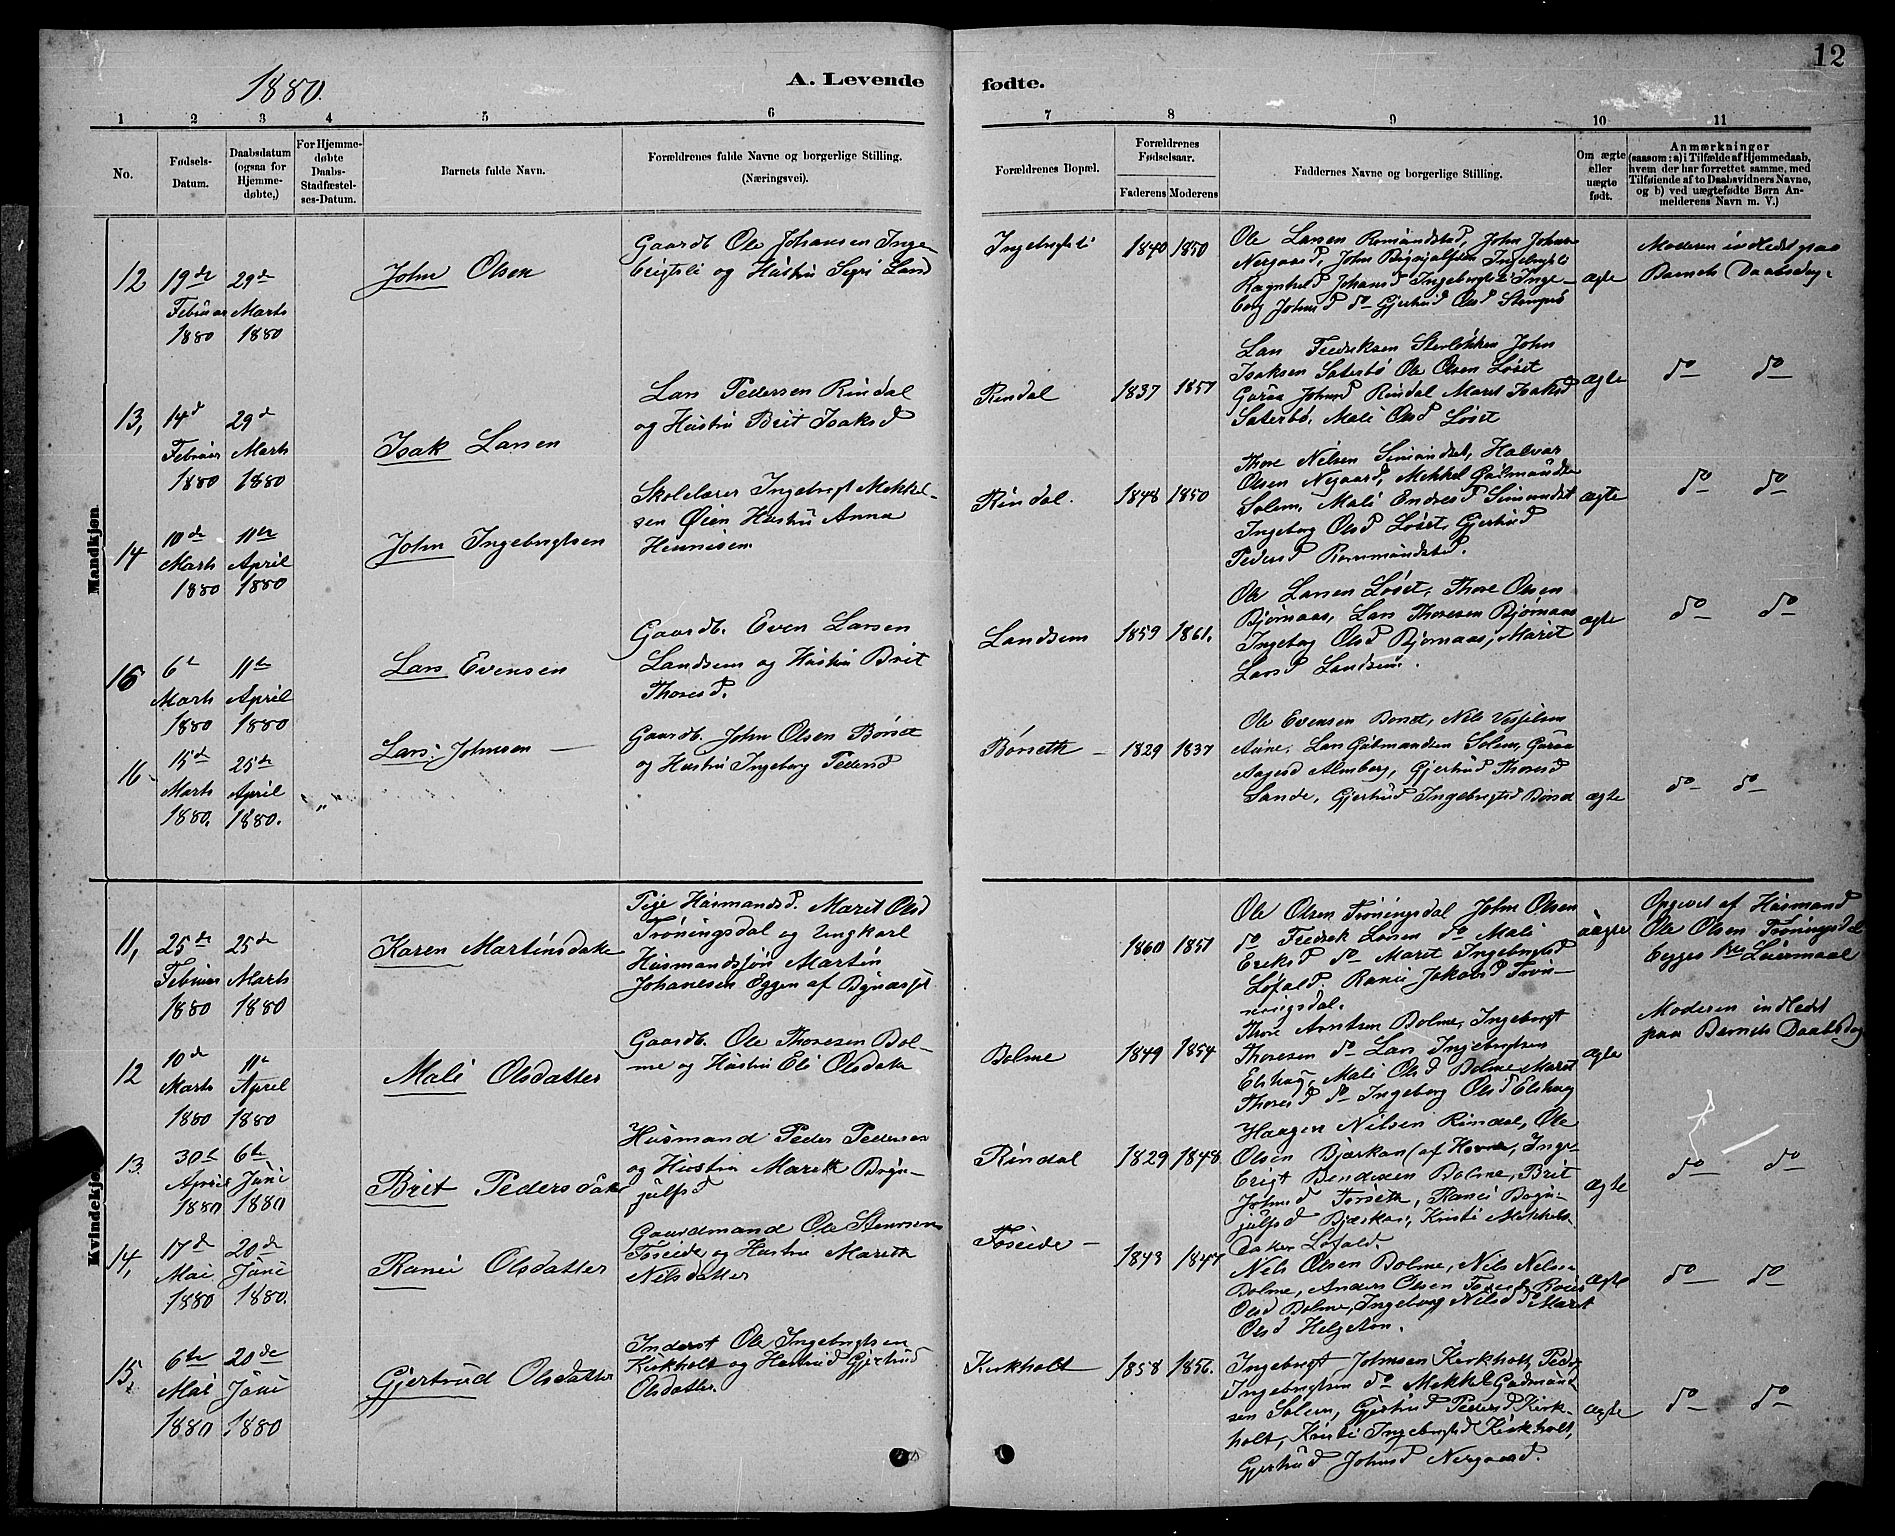 12
1880.
A. Levende
fødte.
1 2 3 4 5 6
7 8 9 10 11
No.
Fødsels-
Datum.
Daabsdatum
(ogsaa for
Hjemme-
døbte,)
For Hjemme-
døbte
Daabs-
Stadfæstel-
ses-Datum.
Barnets fulde Navn.
Forældrenes fulde Navne og borgerlige Stilling.
(Næringsvei).
Forældrenes Bopæl.
Forældrenes
Fødselsaar.
Faderens
Moderens
Faddernes Navne og borgerlige Stilling.
Om ægte
eller
uægte
født.
Anmærkninger
(saasom: a) i Tilfælde af Hjemmedaab,
hvem der har forrettet samme, med
Tilføiende af to Daabsvidners Navne,
og b) ved uægtefødte Børn An-
melderens Navn m. V.)
Mandkjøn.
12
19de
Februar
1880
29de
Marts
1880
John Olsen
Gaardb. Ole Johansen Inge-
brigtsli og Hustru Sigri Land
Ingebrigtsli
1840 1850
Ole Larsen Romundstad, John Johns
Nergaard, John Ingebrigtsli
Ragnhild Johansd Ingebrigtsli Inge-
borg Johnsd do Gjertrud Olsd
ægte
Moderen indledet paa
Barnets Daabsdag.
13,
14d
Februar
1880
29
Marts
1880
Isak Larsen
Lars Pedersen Rindal
og Hustru Brit Isaksd
Rindal
1837 1857
Lars Fredriksen John
Isaksen Sæterbø Ole Olsen Løset
Guraa Johnsd Rindal Marit Isaksd
Sæterbø, Mali Olsd Løset
ægte
do do
14
10de
Marts
1880
11te
April
1880
John Ingebrigtsen
Skolelærer Ingebrigt Mekkel-
sen Øien Hustru Anna
Hennisen
Rindal.
1848 1850
Thore Nilsen Simundset, Halvar
Olsen Negaard, Mekkel Gudmundsen
Solem, Mali Endresd Simundset
Ingeborg Olsd Løset, Gjertrud
Pedersd Rommundstad.
ægte
do do
15
6te
Marts
1880
11te
April
1880
Lars Evensen
Gaardb. Even Larsen
Landsem og Hustru Brit
Thoresd.
Landsem
1859 1861.
Ole Larsen Løset, Thore Olsen
Bjørnaas, Lars Thoresen Bjørnaas
Ingebog Olsd Bjørnaas, Marit
Larsd Landsem.
ægte
do do
16
15de
Marts
1880.
25de
April
1880.
"
Lars Johnsen
Gaardb. John Olsen Børset
og Hustru Ingeborg Pedersd
Børseth
1829 1837
Ole Evensen Børset, Nils Vessjelsen
Aune, Lars Gudmundsen Solem, Guraa
Aagesd Almberg, Gjertrud Thoresd
Sande, Gjertrud Ingebrigtsd Børset
ægte
do do
Kvindekjøn.
11,
25de
Februar
1880
25de
Marts
1880
Karen Martinsdatter
Pige Husmandsd. Marit Olsd
Trøningsdal og Ungkarl
Husmandssøn Martin
Johanesen Eggen af Bynæsset
1860 1851
Ole Olsen Trøningsdal John Olsen
do Fredrek Larsen do Mali
Ereksd do Marit Ingebrigtsd
Løfald. Ranei Johansd Trøn-
ningsdal.
uægte
Opgivet af Husmand
Ole Olsen Trøningsdal
begges 1ste Leiermaal
12
10de
Marts
1880
11te
April
1880
Mali Olsdatter
Gaardb. Ole Thoresen Bol-
me og Hustru Eli Olsdatter
Bolme
1849 1854
Thore Arntsen Bolme, Ingebrigt
Thoresen do Lars Ingebrigtsen
Elshaug, Mali Olsd Bolme Marit
Thoresd do Ingeborg Olsd Elshaug
ægte
Moderen indledet
paa Barnets Daabsdag
13
30te
April
1880
6te
Juni
1880
Brit Pedersdatter
Husmand Peder Pedersen
og Hustru Mareth Bryn-
julfsd
Rindal
1829 1848.
Haagen Nilsen Rindal, Ole
Olsen Bjørkan (af Hovne, Inge-
brigt Bendixen Bolme, Brit
Johnsd Torseth, Ranei Bryn-
julfsd Bjørkas, Kristi Mekkels-
datter Løfald.
ægte
do do
14,
17de
Mai
1880
20de
Juni
1880.
Ranei Olsdatter
Gaardmand Ole Steursen
Foseide og Hustru Mareth
Nilsdatter
Foseide
1843 1847
Nils Olsen Bolme, Nils Nilsen
Bolme, Anders Olsen Foseide
Olsd Bolme, Ingeborg Nilsd Marit
Olsd Helgeton.
ægte
do do
15,
6te
Mai
1880
20de
Juni
1880
Gjertrud Olsdatter
Inderst Ole Ingebrigtsen
Kirkholt og Hustrud Gjertrud
Olsdatter
Kirkholt
1858 1856.
Ingebrigt Johnsen Kirkholt, Peder
Ingebrigtsen do Mekkel Gudmund-
sen Solem, Gjertrud Pedersd Kirk-
holt, Kristi Ingebrigtsd Kirkholt,
Gjertrud Johnsd Nergaard.
ægte
do do